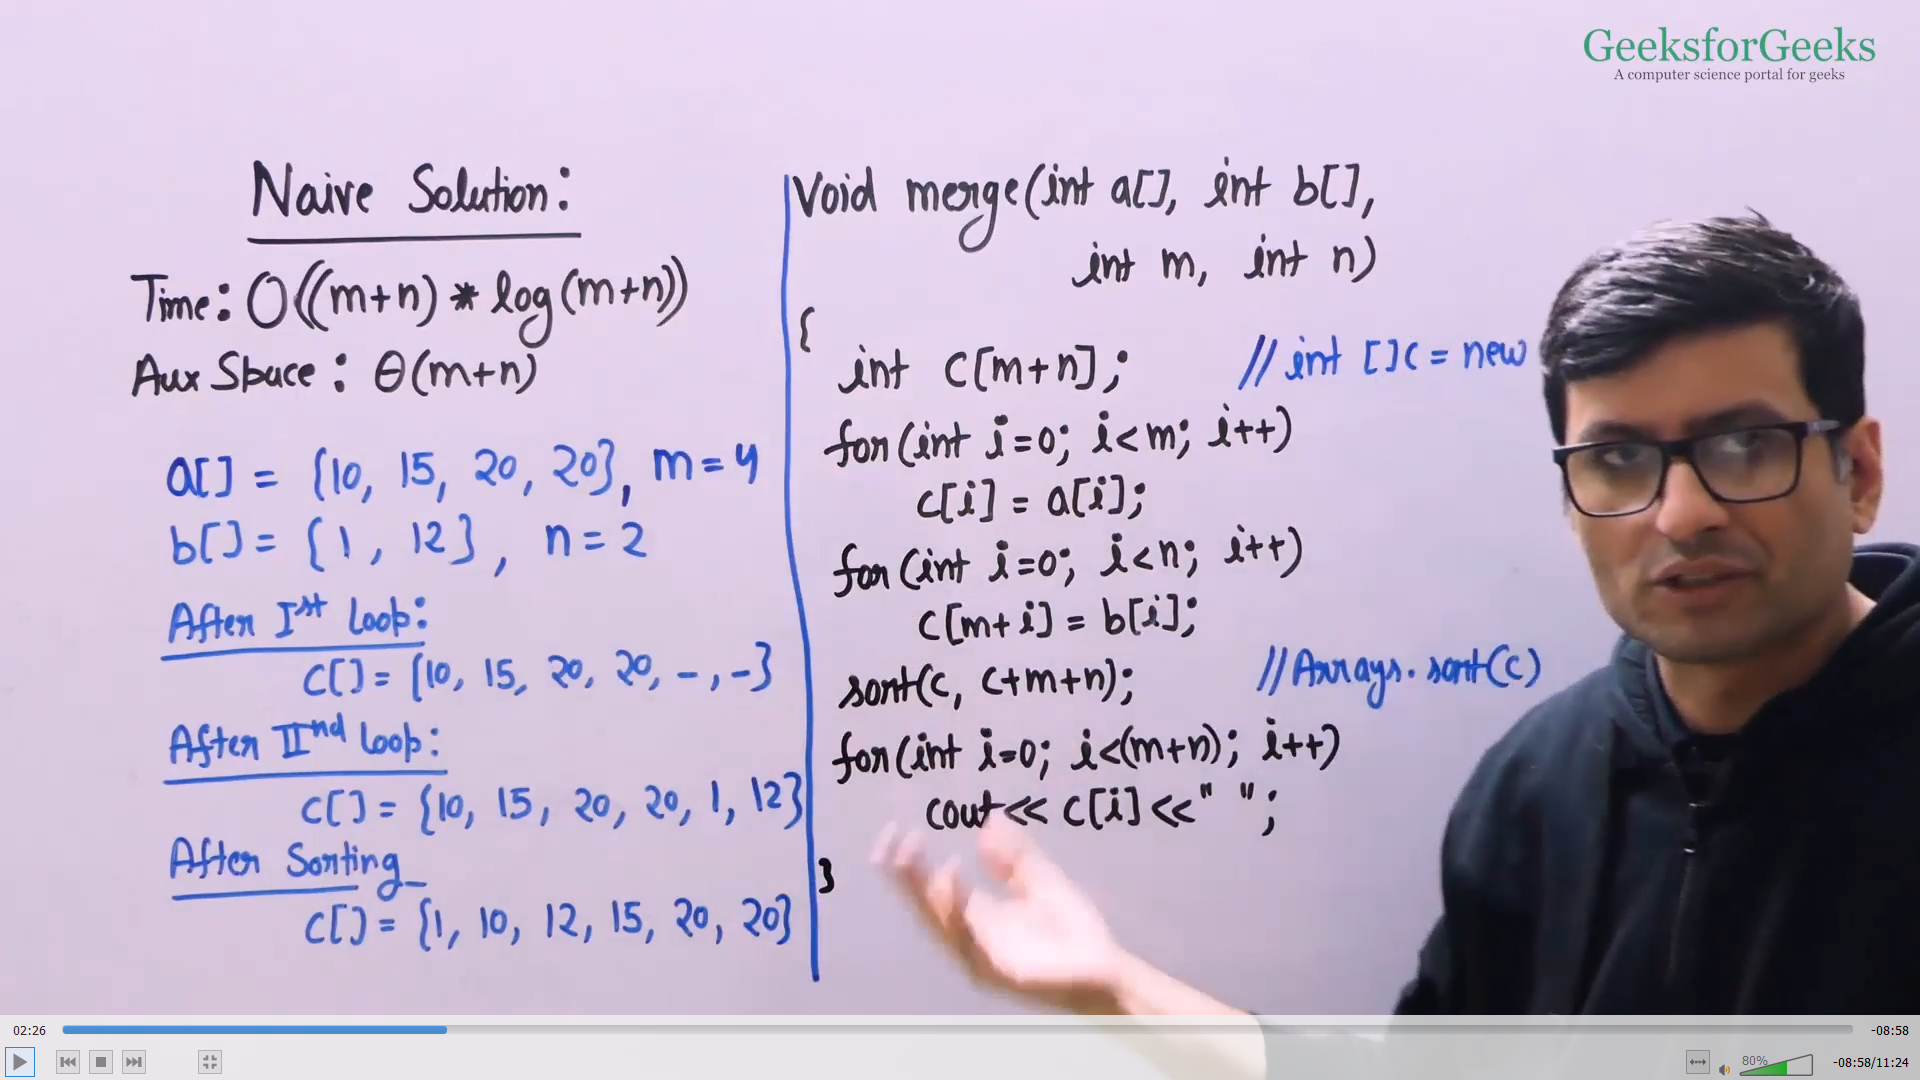 GeeksforGeeks
A computer science portal for geeks
Naive Solution:
Time: O((m+n) * log(m+n))
Aux Space: θ(m+n)
a[] = {10, 15, 20, 20}, m=4
b[] = {1, 12}, n=2
After Ist loop:
c[] = {10, 15, 20, 20, -, -}
After IInd loop:
c[] = {10, 15, 20, 20, 1, 12}
After Sorting_
c[] = {1, 10, 12, 15, 20, 20}
Void merge(int a[], int b[],
int m, int n)
{
int c[m+n]; // int []c = new
for(int i=0; i<m; i++)
c[i] = a[i];
for(int i=0; i<n; i++)
c[m+i] = b[i];
sort(c, c+m+n); //Arrays.sort(c)
for(int i=0; i<(m+n); i++)
cout<< c[i]<<" ";
}
02:26 -08:58
80% -08:58/11:24